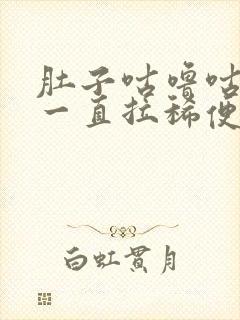 肚子咕噜咕
一直拉稀便
白虹贯月